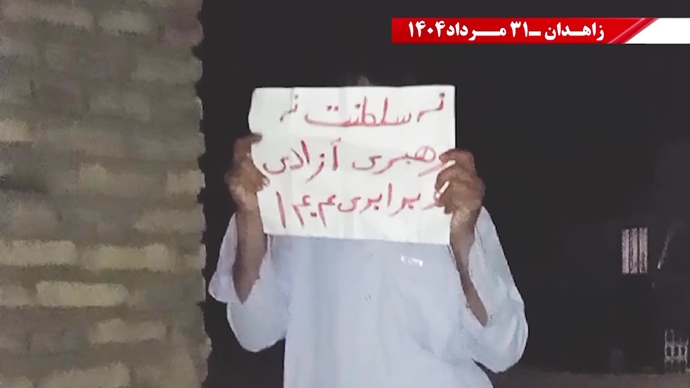 زاهدان _ ۳۱ مرداد ۱۴۰۴
نه سلطنت نه
رهبری آزادی
و برابری م م ۱